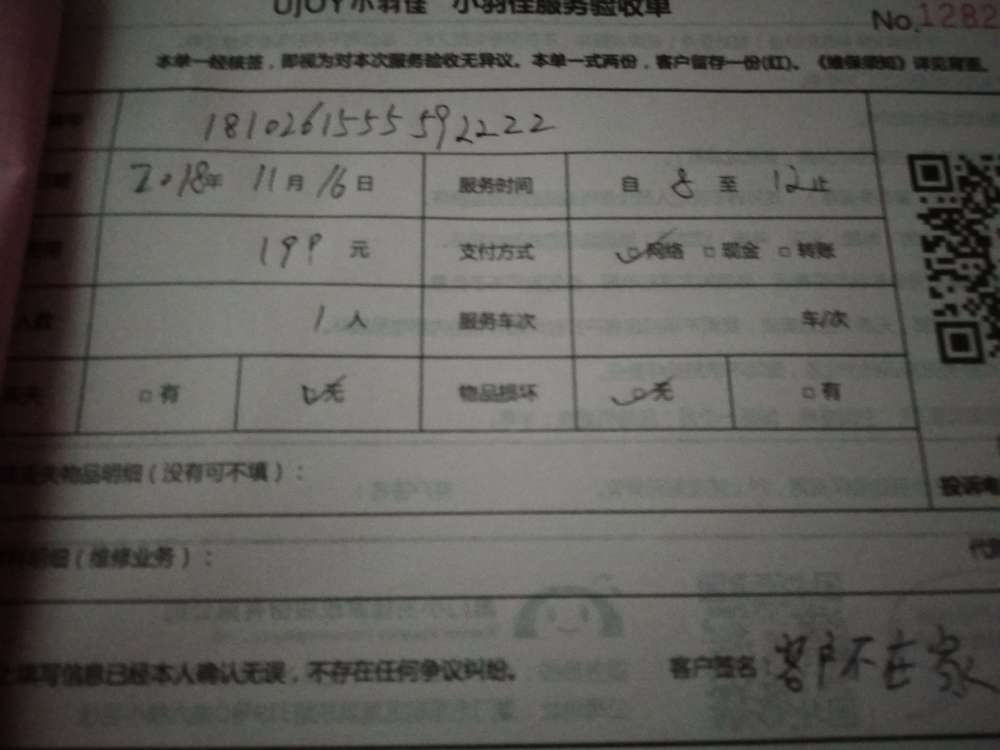 UJOY小羽佳 小羽佳服务验收单
No.1282
本单一经核签，即视为对本次服务验收无异议。本单一式两份，客户留存一份(红)。《维保须知》详见背面。
181026155559 2222
2018年 11月 16日 服务时间 自 8 至 12 止
199 元 支付方式 ☑网络 □现金 □转账
人数 1人 服务车次 车/次
□有 ☑无 物品损坏 ☑无 □有
物品明细（没有可不填）：
投诉电
明细（维修业务）：
填写信息已经本人确认无误，不存在任何争议纠纷。 客户签名：客户不在家